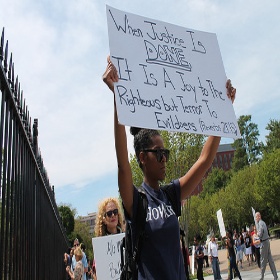 When Justice Is
DONE,
It Is A Joy to The
Righteous but Terror To
Evildoers (Proverbs 21:15)
HOW